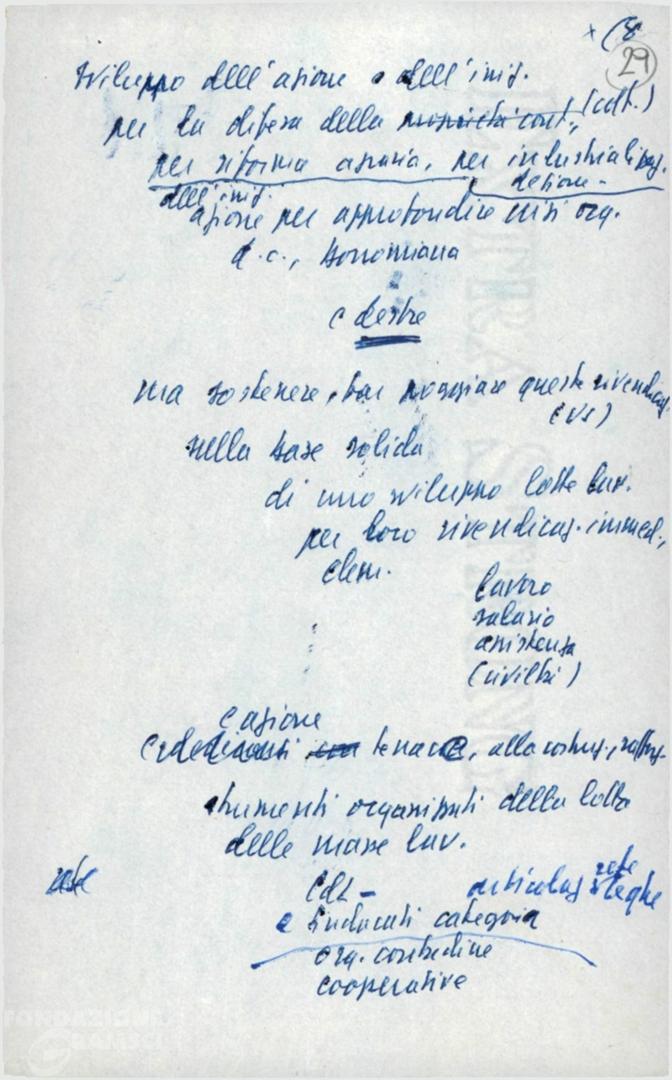 29
sviluppo dell'azione e dell'iniz.
per la difesa della proprietà cont., (colt.)
per riforma agraria, per industrializzaz.
dell'iniz.
azione per approfondire crisi org.
d.c., bonomiana
e destre
ma sostenere, ben poggiare queste rivendicaz
sulla base solida
di uno sviluppo lotte lav.
per loro rivendicaz. immed.,
elem.
lavoro
salario
assistenza
(civiltà)
e azione
tenace, alla costruz., raffor.
strumenti organizzati della lotta
delle masse lav.
rete
CdL - articolaz leghe
e sindacati categoria
org. contadine
cooperative
FONDAZIONE
GRAMSCI